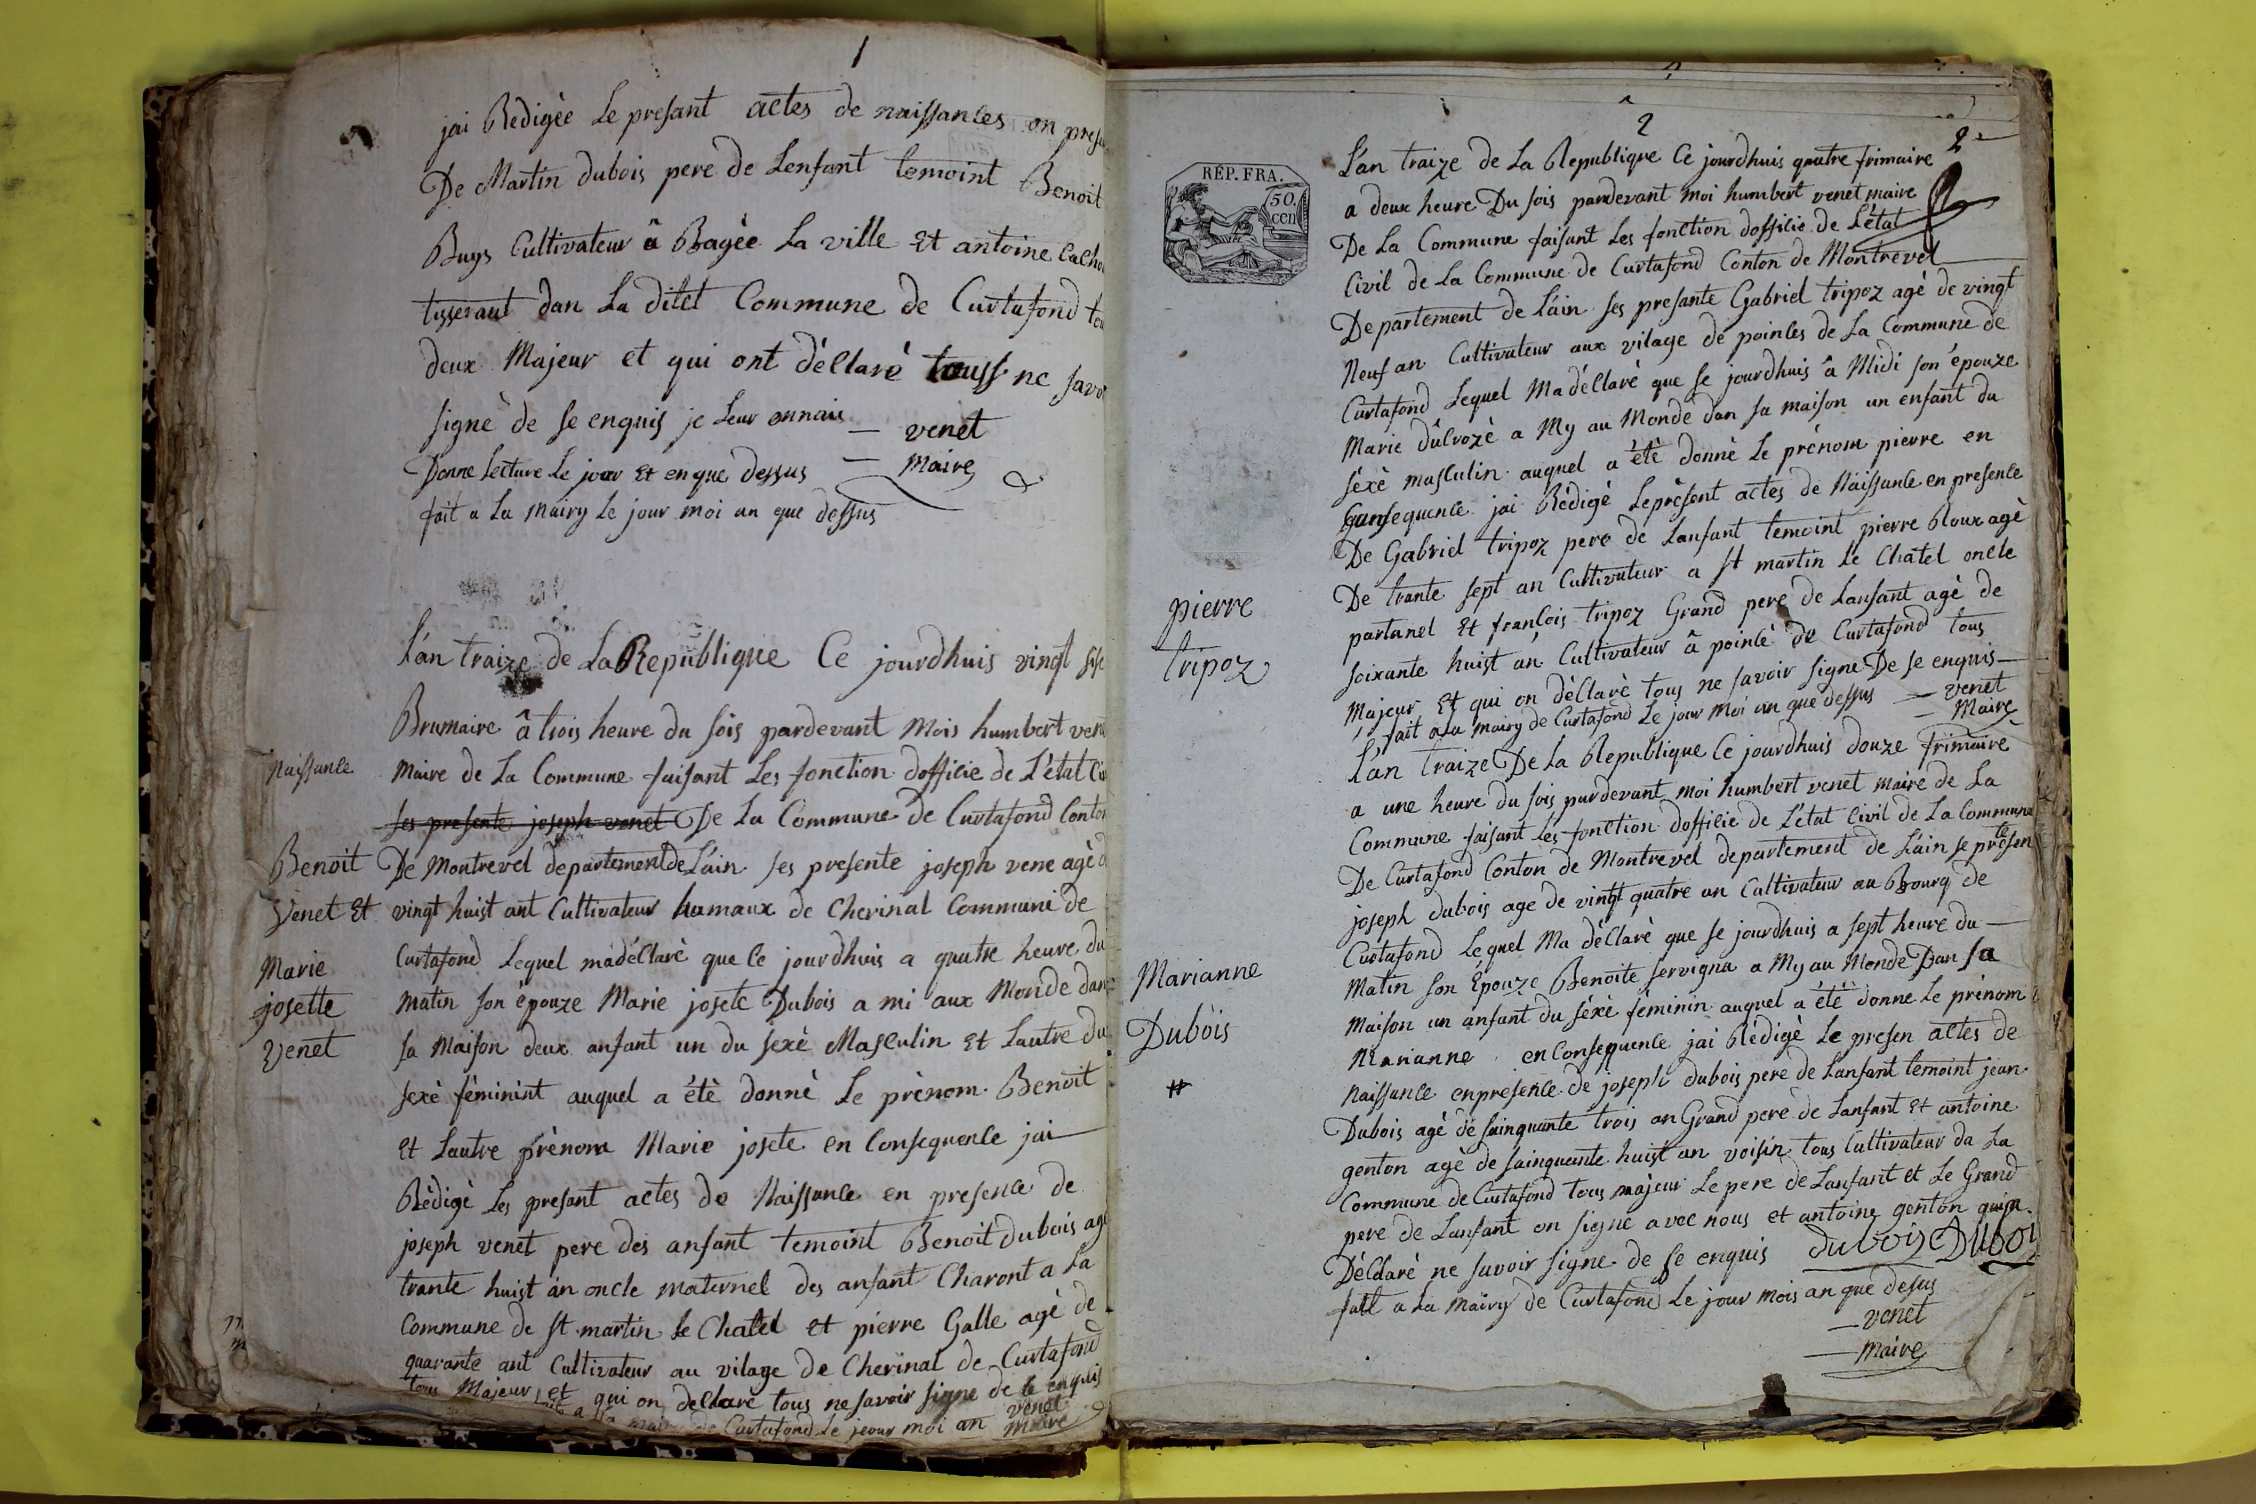 1
jai Redigèe Le presant actes de naissances on
De Martin dubois pere de Lenfant temoint Benoit
Buys Cultivateur â Bagèe La ville Et antoine
tisseraut dan La ditet Commune de Curtafond
deux Majeur et qui ont dèClarè touss ne
signè de se enquis je Leur onnais — venet
Donne Lecture Le jour Et enque dessus — Maire
fait a La Mairy Le jour moi an que dessus
L'an traize de La Republique Ce jourdhuis vingt
Brumaire â trois heure du sois pardevant Mois humbert
Naissance
Maire de La Commune faisant Les fonction dofficie de L'état
ses presente joseph venet De La Commune de Curtafond
Benoit
Venet Et
Marie
josette
Venet
De Montrevel departement de L'ain ses presente joseph vene agè
vingt huist ant Cultivateur hamaux de Cherinal Communi de
Curtafond Lequel madéClarè que Ce jourdhuis a quatre heure du
matin son èpouze Marie josete Dubois a mi aux Monde dan
sa Maison deux anfant un du sexè MasCulin Et Lautre du
sexè fèminint auquel a étè donnè Le prènom Benoit
Et Lautre prènom Marie josete en Consequence jai
Rèdigè Les presant actes de Naissance en presence de
joseph venet pere des anfant temoint Benoit dubois
trante huist an oncle maternel des anfant Charont a La
Commune de St martin Le Chatel et pierre Galle agè de
quarante ant Cultivateur au vilage de Cherinal de Curtafond
tous Majeur et qui on declarè tous ne savoir signe de se enquis
Curtafond Le jour moi an venet
Maire
2
2
RÉP. FRA.
50.
cen
L'an traize de La Republique Ce jourdhuis quatre frimaire
a deux heure Du sois pardevant moi humbert venet maire
De La Commune faisant Les fonction dofficie de L'état
Civil de La Commune de Curtafond Conton de Montrevel
Departement de L'ain ses presante Gabriel tripoz agè de vingt
Neuf an Cultivateur aux vilage de poinles de La Commune de
Curtafond Lequel MadéClarè que se jourdhuis â Midi son épouze
Marie a My au Monde dan sa maison un enfant du
sèxè masCulin auquel a étè donnè Le prénom pierre en
Consequence jai Rèdigè Leprèsent actes de Naissance en presence
De Gabriel tripoz pere de Lanfant temoint pierre Roux agè
De trante sept an Cultivateur a St martin Le Chatel oncle
partanel Et franCois tripoz Grand pere de Lanfant agè de
soixante huist an Cultivateur â poinlè de Curtafond tous
Majeur Et qui on dèClarè tous ne savoir signe De se enquis —
fait a La mairy de Curtafond Le jour Moi an que dessus — venet
— Maire
pierre
tripoz
L'an traize De La Republique Ce jourdhuis douze frimaire
a une heure du sois pardevant moi humbert venet maire de La
Commune faisant Les fonction dofficie de L'état Civil de La Commune
De Curtafond Conton de Montrevel departement de L'ain se presente
joseph dubois age de vingt quatre an Cultivateur au Bourg de
Curtafond Lequel Ma dèClarè que se jourdhuis a sept heure du —
Matin son Épouze Benoite servigna a My au Monde Dan sa
Maison un anfant du sèxè fèminin auquel a étè donne Le prènom
Marianne enConsequence jai Rèdigè Le presen actes de
Naissance enpresence de joseph dubois pere de Lanfant temoint jean
Dubois agè de sainquante trois an Grand pere de Lanfant Et antoine
genton agè de sainquante huist an voisin tous Cultivateur da La
Commune de Curtafond tous majeur Le pere de Lanfant et Le Grand
pere de Lanfant on signe avec nous et antoine genton
DèClarè ne savoir signe de se enquis dubois Duboi
fait a La Mairy de Curtafond Le jour mois an que desus
— venet
— Maire
Marianne
Dubois